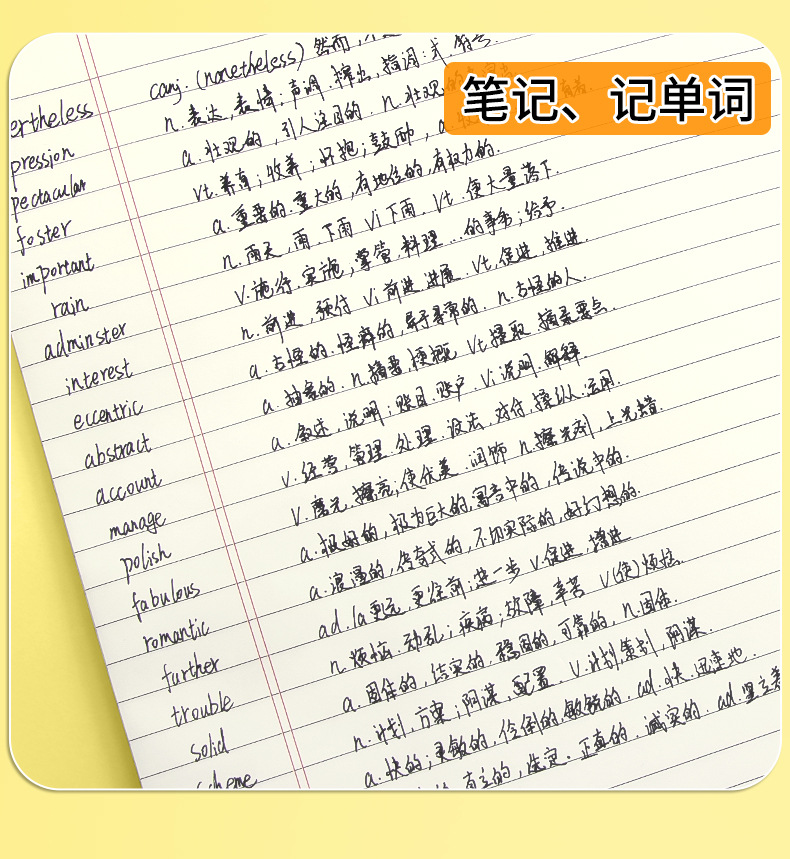 笔记、记单词
ertheless conj. (nonetheless) 然而,
pression n. 表达, 表情, 声调, 榨出, 强调; 式, 符号
pectacular a. 壮观的, 引人注目的. n. 壮观的
foster vt. 养育; 收养; 好抱; 鼓励, a.
important a. 重要的. 重大的, 有地位的, 有权力的.
rain n. 雨天, 雨 下雨 vi 下雨. Vt. 使大量落下.
adminster v. 施行. 实施, 掌管. 料理...的事务; 给予.
interest n. 前进, 预付 Vi 前进. 进展. Vt, 促进, 推进.
eccentric a. 古怪的. 怪癖的, 异于寻常的 n. 古怪的人.
abstract a. 抽象的. n. 摘要, 梗概 Vt 提取 摘录要点.
account a. 叙述, 说明; 账目, 账户 Vi 说明. 解释.
manage v. 经营, 管理. 处理. 设法, 对付. 操纵. 运用.
polish V. 磨光. 擦亮; 使优美. 润饰 n. 擦光剂, 上光蜡.
fabulous a. 极好的, 极为巨大的, 寓言中的, 传说中的.
romantic a. 浪漫的, 传奇式的, 不切实际的, 好幻想的.
further ad. 1a 更远, 更往前; 进一步 v. 促进, 增进
trouble n. 烦恼. 动乱; 疾病; 故障, 辛苦 v(使) 烦恼.
solid a. 固体的, 结实的, 稳固的, 可靠的, n. 固体.
cheme n. 计划, 方案; 阴谋, 配置. v. 计划, 策划, 阴谋
a. 快的; 灵敏的, 俭倒的, 敏锐的. ad. 快. 迅速地.
正真的. 诚实的. ad.